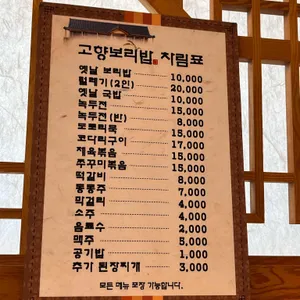 고향보리밥 차림표
옛날 보리밥 10,000
털레기 (2인) 20,000
옛날 국밥 10,000
녹두전 15,000
녹두전 (반) 8,000
도토리묵 15,000
코다리구이 17,000
제육볶음 15,000
쭈꾸미볶음 15,000
떡갈비 8,000
동동주 7,000
막걸리 4,000
소주 4,000
음료수 2,000
맥주 5,000
공기밥 1,000
추가 된장찌개 3,000
모든 메뉴 포장 가능합니다.